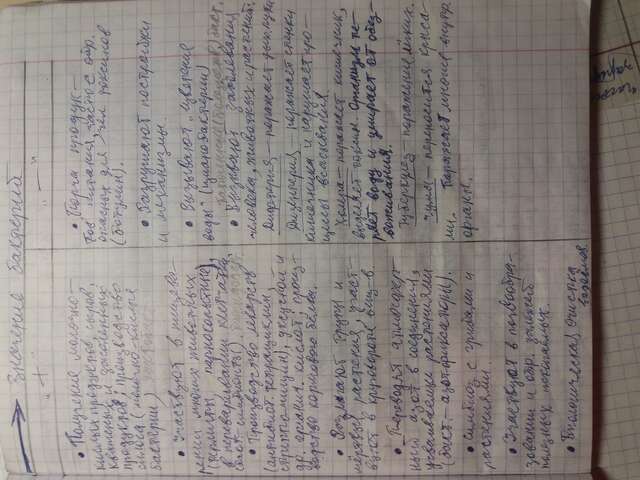 Значение бактерий
"+"
• Получение молочно-
кислых продуктов, сыров,
квашеных и засоленных
продуктов; производство
силоса (молочно-кислые
бактерии)
• Участвуют в пищева-
рении многих животных
(термиты, парнокопытные),
в переваривании клетчатки,
(бакт.-симбионты).
• Производство лекарств
(антибиот. тетрациклин,
стрептомицин), уксусной и
др. органич. кислот; произ-
водство кормового белка.
• Разлагают трупы и
мёртвые растения, участ-
вуют в круговороте вещ-в.
• Переводят атмосфер-
ный азот в соединения,
усваиваемые растениями
(бакт.-азотофиксаторы).
• Симбиоз с грибами и
растениями.
• Участвуют в почвообра-
зовании и обр. залежей
полезных ископаемых.
• Биологическая очистка
водоёмов.
"—"
• Порча продук-
тов питания, часто с обр.
опасных для чел. токсинов
(ботулин).
• Разрушают постройки
и механизмы.
• Вызывают "цветение
воды" (цианобактерии)
• Вызывают заболевания
человека, животных и растений:
Дифтерия — поражает дых. пути
Дизентерия — поражает стенки
кишечника и нарушает про-
цессы всасывания.
Холера — поражает кишечник,
выделяет токсин. Организм те-
ряет воду и умирает от обез-
воживания.
Туберкулез — поражение лёгких.
Чума — переносится крыса-
ми. Поражает многие внутр.
органы.